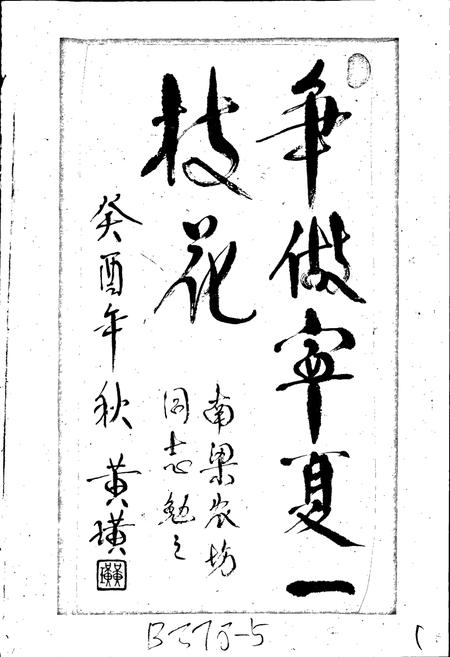 争做宁夏一
枝花
南梁农场
同志勉之
癸酉年秋 黄璜